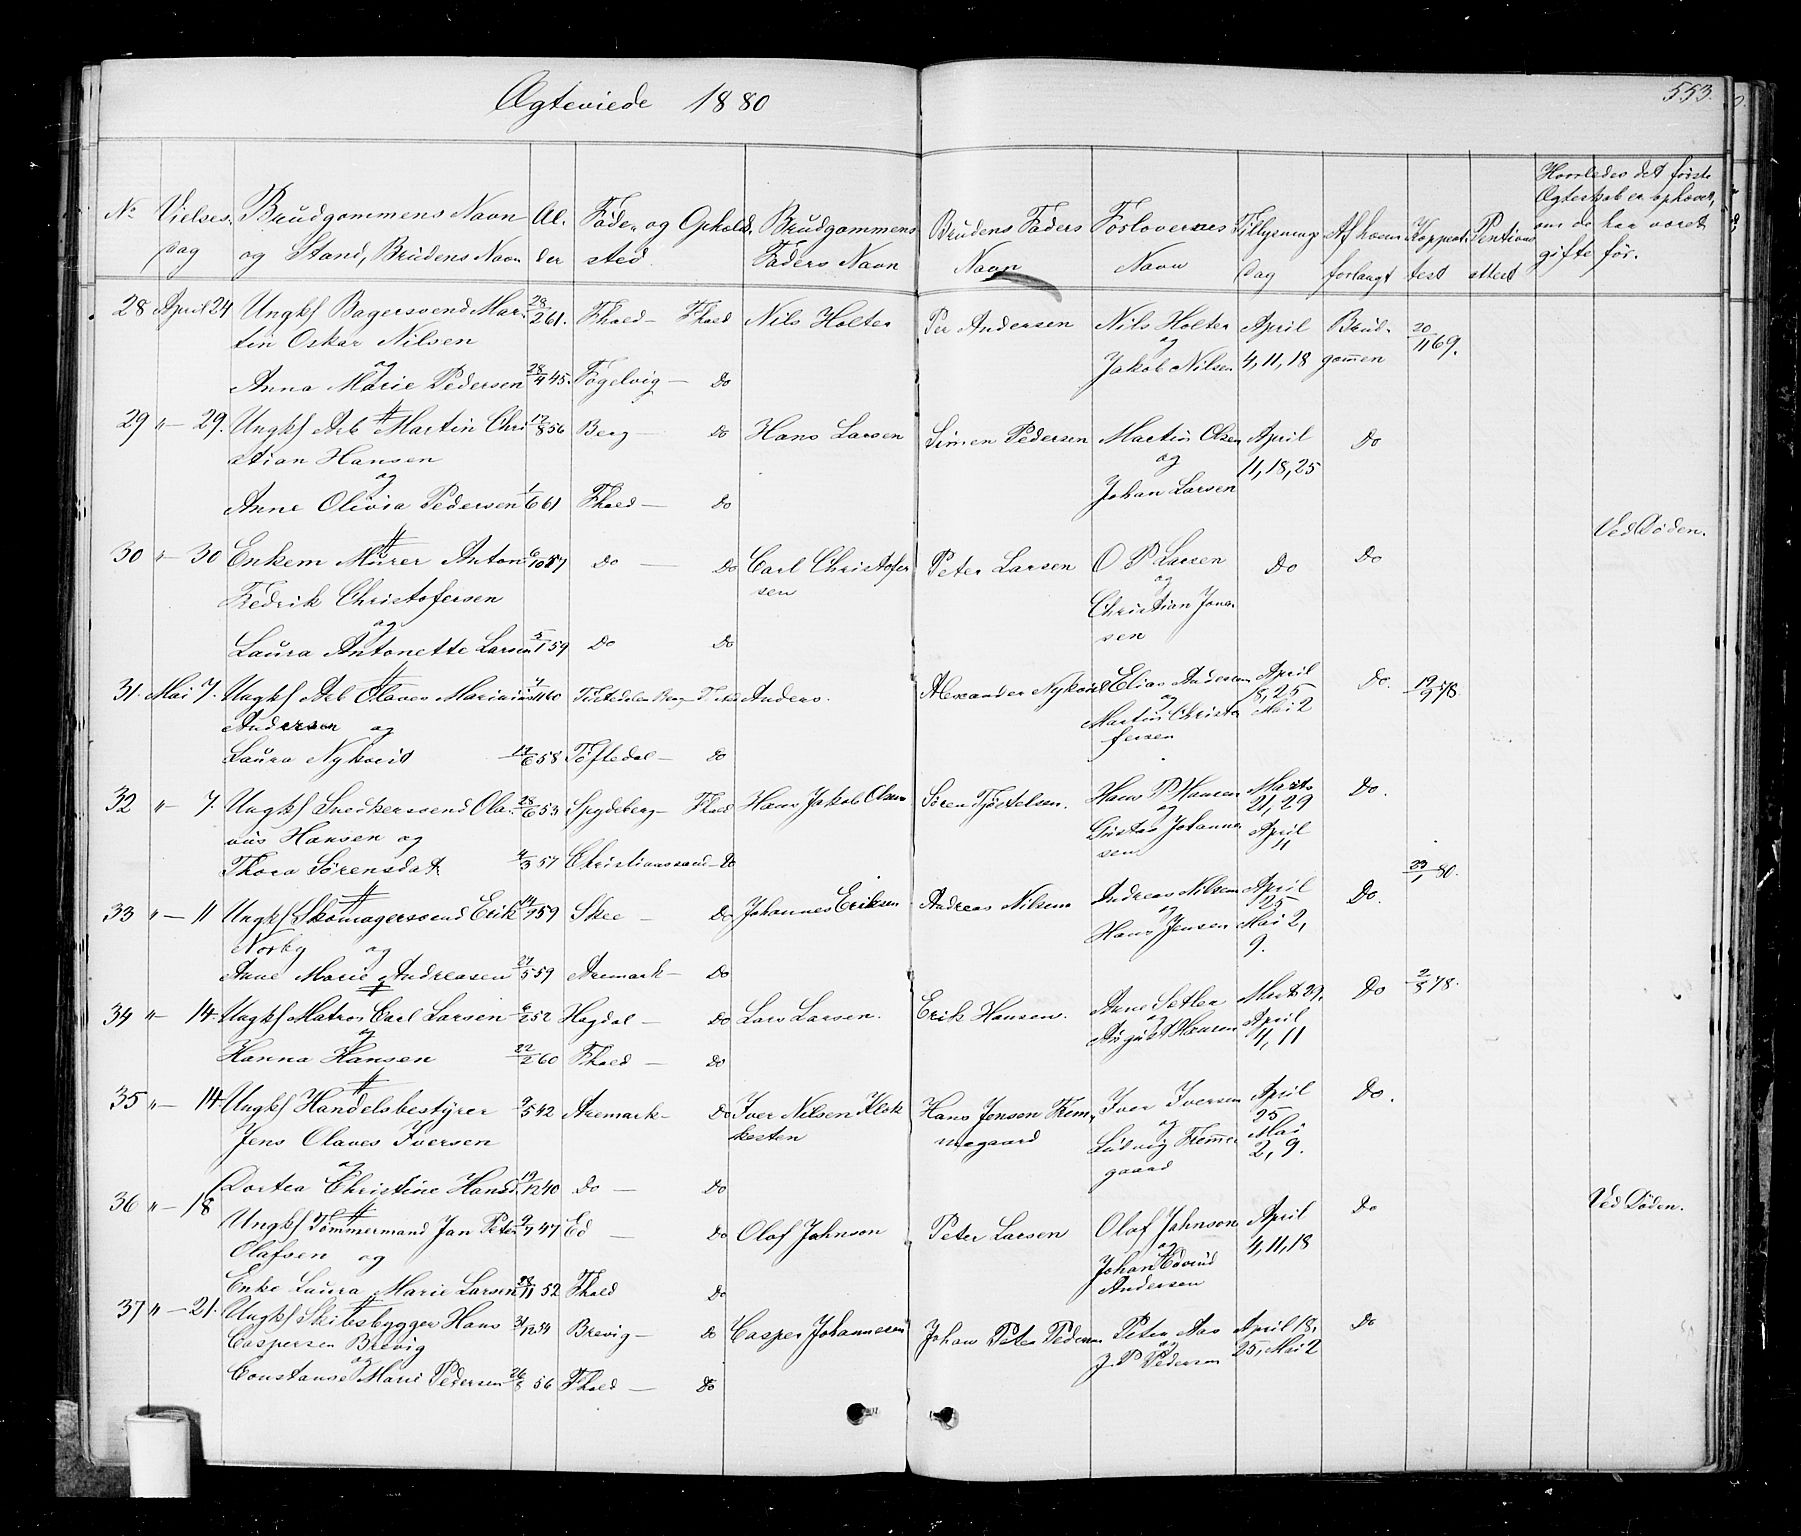 Ægteviede 1880
553.
No Vielses Dag
Brudgommens Navn og Stand, Brudens Navn
Al. der
Føde- og Ophold. sted.
Brudgommens Faders Navn
Brudens Faders Navn
Forlovernes Navn
Tillysnings Dag
Af hvem forlangt
Koppeat. test
Hvorledes det første Ægteskab er ophævet, om de har været gifte før.
28 April 24 Ungkf Bagersvend Mar- 28/2 61. Fhald — Fhald Nils Holter Per Andersen Nils Holter April Brud- 20/11 69.
tin Oskar Nilsen og
og Jakob Nilsen 4, 11, 18 gommen
Anna Marie Pedersen 28/4 45. Fogelvig — Do
29 " — 29. Ungkf Arb Martin Chri 17/8 56 Berg — Do Hans Larsen Simen Pedersen Martin Olsen April Do
stian Hansen og 11, 18, 25
og Johan Larsen
Anne Olivia Pedersen 1/6 61 Fhald — Do
Ved Døden.
30 " — 30 Enkem Murer Anton 6/10 57 Do — Do Carl Christofer Peter Larsen O P Larsen Do Do
Fredrik Christofersen sen og
og Christian Jona
Laura Antonette Larsen 5/1 59 Do Do sen
31. Mai 7. Ungkf Arb Olaves Marinius Anders. Alexander Nykvist Elias Andersen April Do. 19/9 78.
Andersen og og 18, 25
Martin Christo Mai 2
Laura Nykvist 14/6 58 Töftedal — Do fersen
32 " — 7. Ungkf Snedkersvend Ola- 28/6 53 Spydeberg — Fhald Hans Jakob Olsen Søren Tjøstelsen. Hans P Hansen Marts Do.
vus Hansen og og 21, 29
Gustav Johanne April
Thora Sørensdat 4/3 57 Christianssand — Do sen 11
23/1 80.
33 " — 11 Ungkf Skomagersvend Erik 59 Skee — Do Johannes Eriksen Andreas Nilsen Andreas Nilsen April Do.
Norby og og 25
Hans Jensen Mai 2,
9.
Anne Marie Andreasen 27/5 59 Aremark — Do
34 " — 14. Ungkf Matros Carl Larsen 6/2 52 Hogdal — Do Lars Larsen. Erik Hansen. Marts 29, Do 2/5 78.
og og April
August Hansen 4, 11
Hanna Hansen 22/2 60 Fhald — Do
35 " — 14 Ungkf Handelsbestyrer 9/5 42 Aremark — Do Iver Nilsen Klok Hans Jensen Frem- Iver Iversen April Do.
Jens Olaves Iversen kesten megaard og 25
og Ludvig Fremme Mai
gaard 2, 9.
Dortea Christine Hansd. 19/12 40 Do — Do
36 " — 18 Ved Døden.
Ungkf Tømmermand Jan Peter 9/7 47 Ed — Do Olof Johnson Peter Larsen Olof Johnson April Do
Olafsen og og 4, 11, 18
Johan Edvind
Enke Laura Marie Larsen 28/11 52 Fhald Do Andersen
37 " — 21. Ungkf Skibsbygger Hans 31/12 54 Brevig — Do Casper Johannesen Johan Peter Pedersen Peter Aas April 18,
Caspersen Brevig og 25, Mai 2 Do
og J. P Pedersen
Constanse Marie Pedersen 56 Fhald — Do